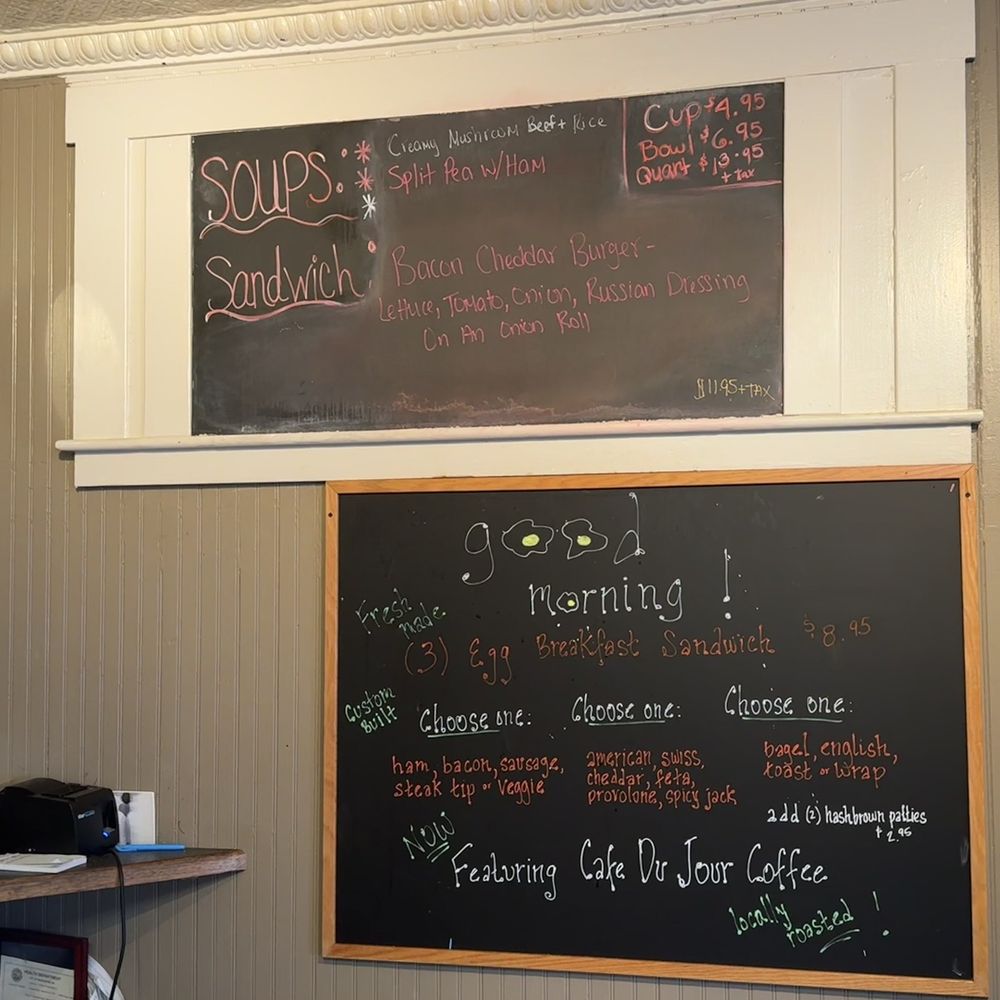 SOUPS:
Creamy Mushroom Beef + Rice
Split Pea W/Ham
Cup $4.95
Bowl $6.95
Quart $13.95
+ tax
Sandwich
Bacon Cheddar Burger-
Lettuce, Tomato, Onion, Russian Dressing
On An Onion Roll
$11.95+TAX
good
morning!
Fresh
made
(3) Egg Breakfast Sandwich $8.95
Custom
Built
Choose one:
ham, bacon, sausage,
steak tip or Veggie
Choose one:
american, swiss,
cheddar, feta,
provolone, spicy jack
Choose one:
bagel, english,
toast or wrap
add (2) hashbrown patties
+ 2.95
NOW
Featuring Cafe Du Jour Coffee
locally
roasted!
HEALTH DEPARTMENT